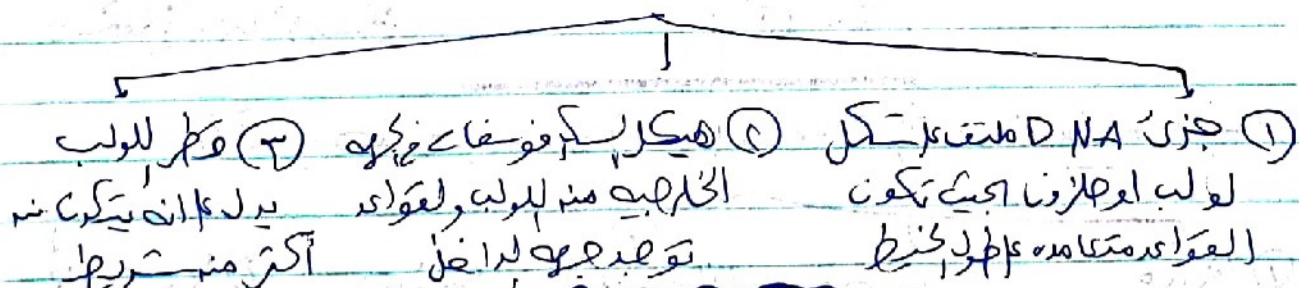 ① جزئ DNA ملتف على شكل
لولب او حلزون بحيث تكون
القواعد متعامده على طول الخيط
② هيكل سكر فوسفات في الجهه
الخارجيه من اللولب والقواعد
توجد جهه الداخل
③ قطر اللولب
يدل على انه يتكون من
أكثر من شريط